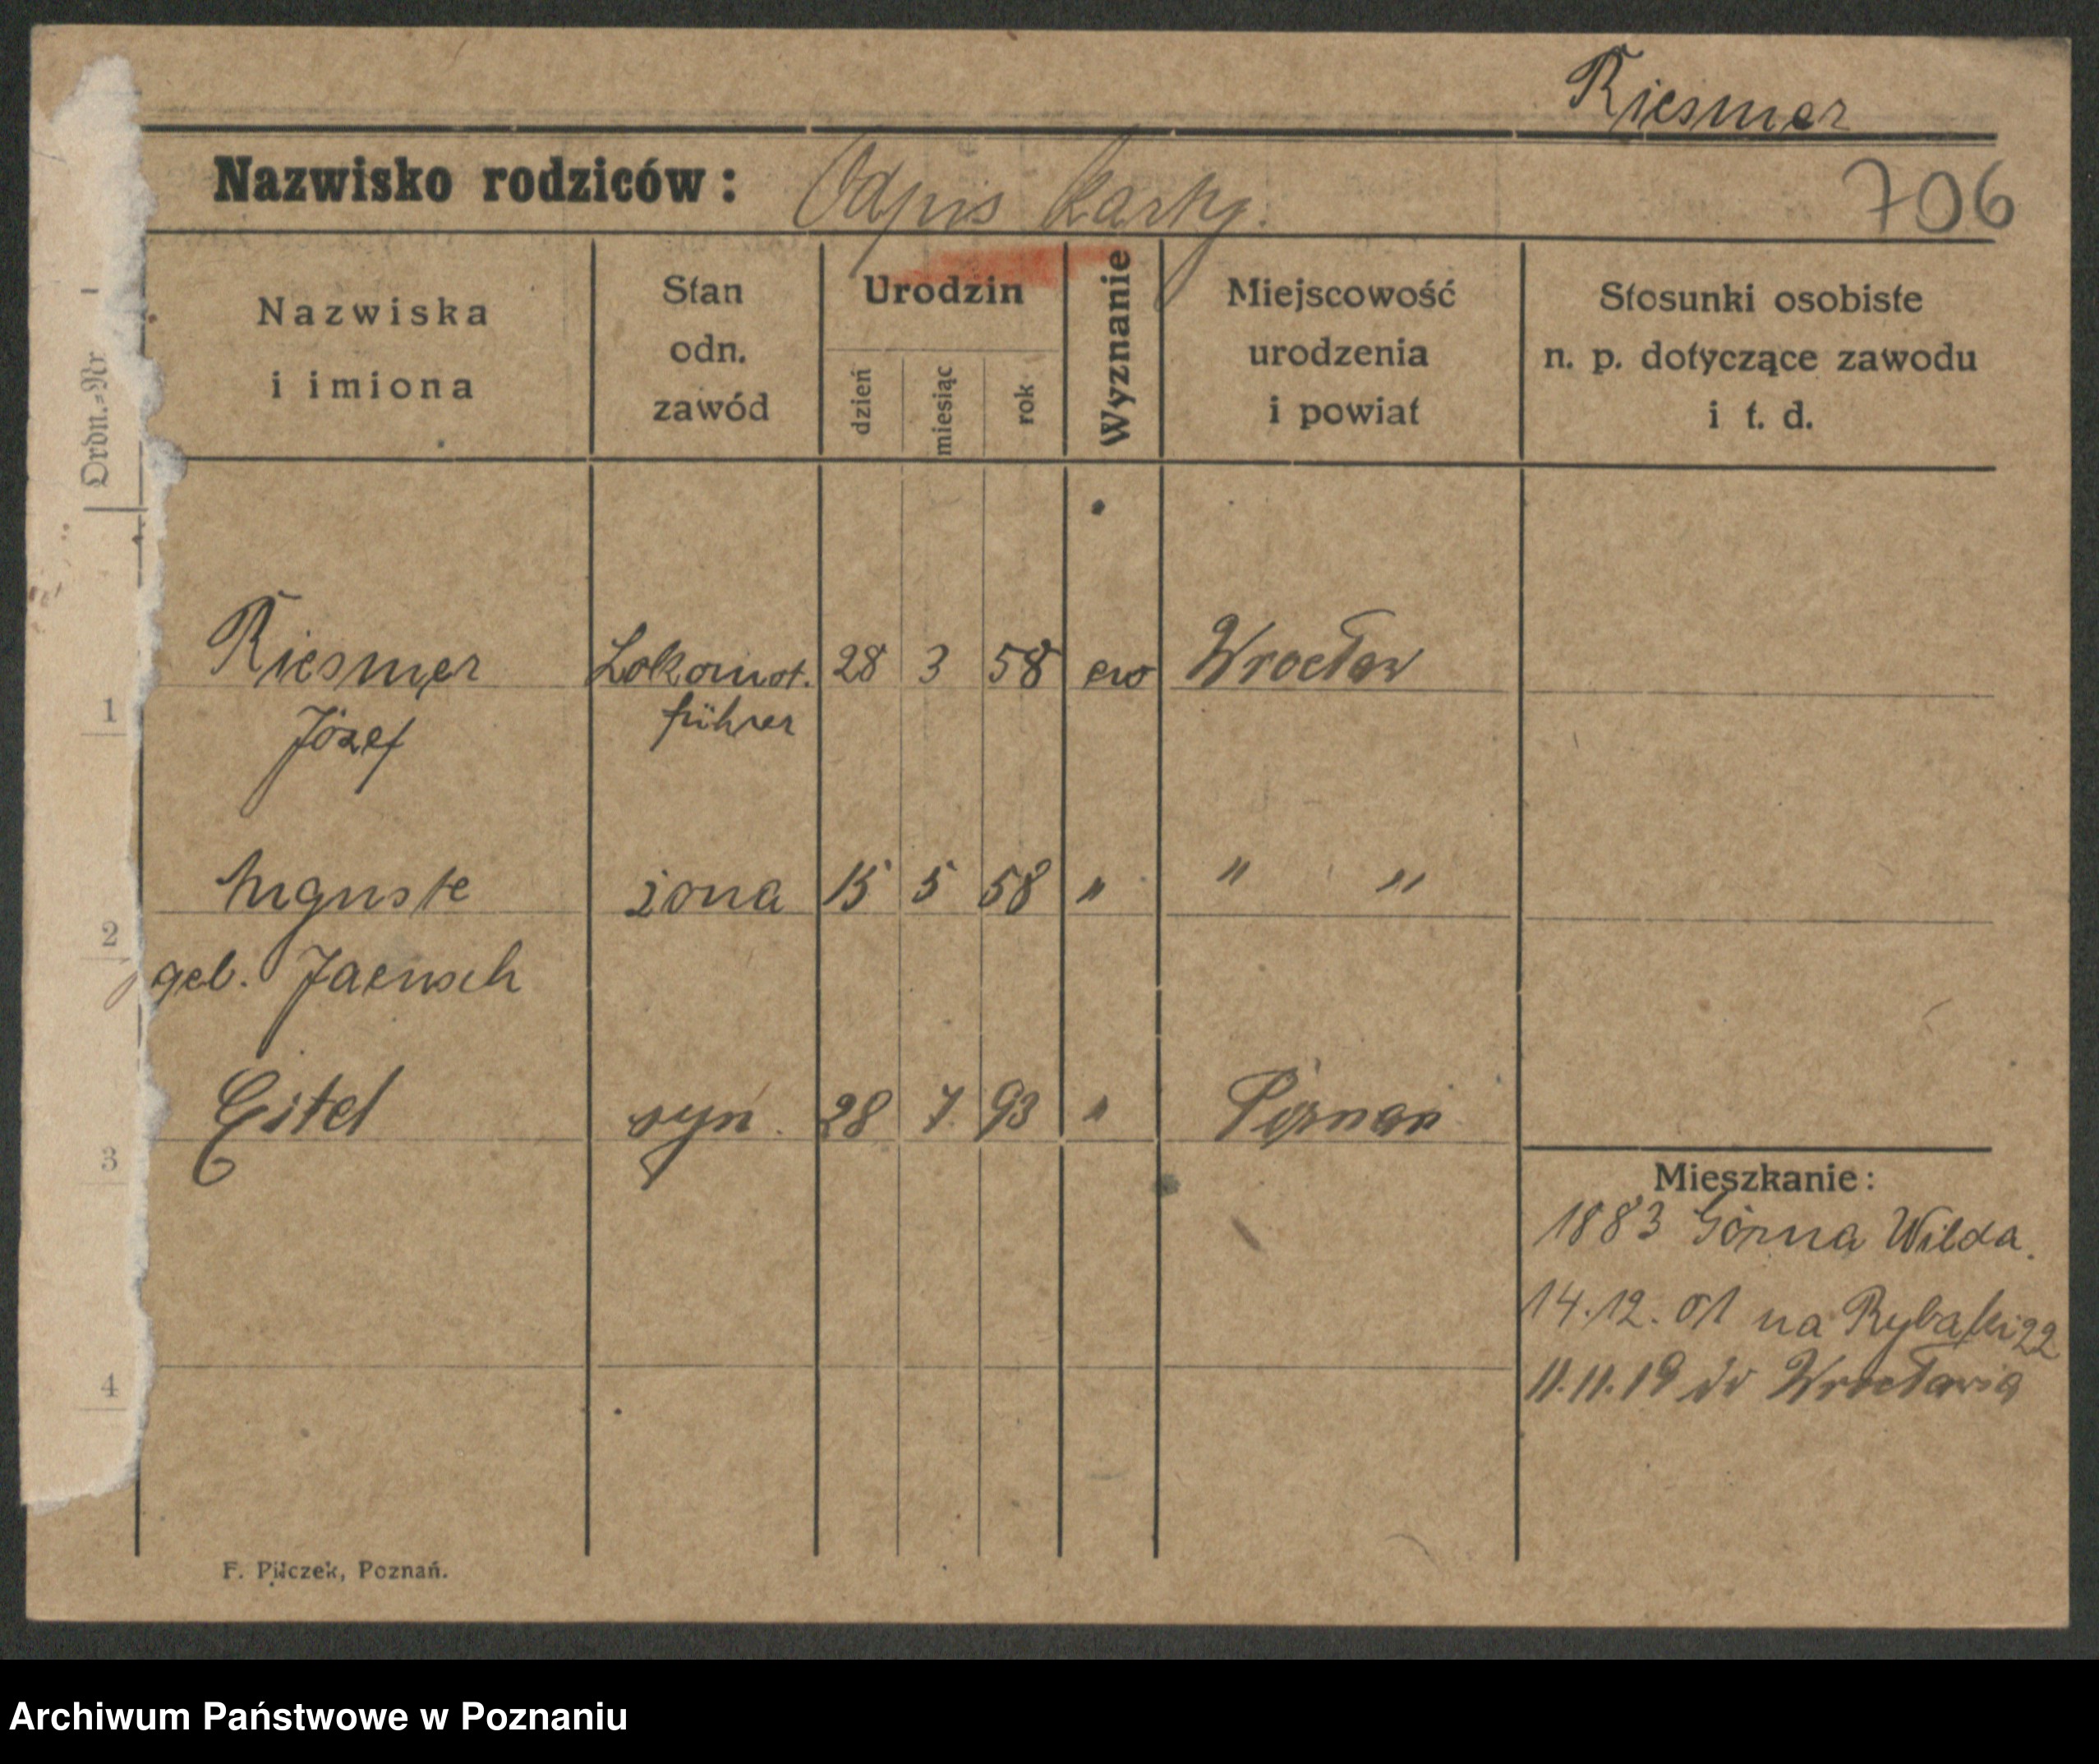 Riesmer
Nazwisko rodziców: Odpis karty.
706
Ordn.=Nr
Nazwiska i imiona
Stan odn. zawód
Urodzin
dzień
miesiąc
rok
Wyznanie
Miejscowość urodzenia i powiat
Stosunki osobiste n. p. dotyczące zawodu i t. d.
1 Riesmer Lokomot. 28 3 58 ew Wrocław
Józef führer
2 Auguste żona 15 5 58 " " "
geb. Jaensch
3 Eitel syn. 28 7 93 " Poznań
4
Mieszkanie:
1883 Górna Wilda.
14.12.01 na Rybaki 22
11.11.19 do Wrocławia
F. Pilczek, Poznań.
Archiwum Państwowe w Poznaniu